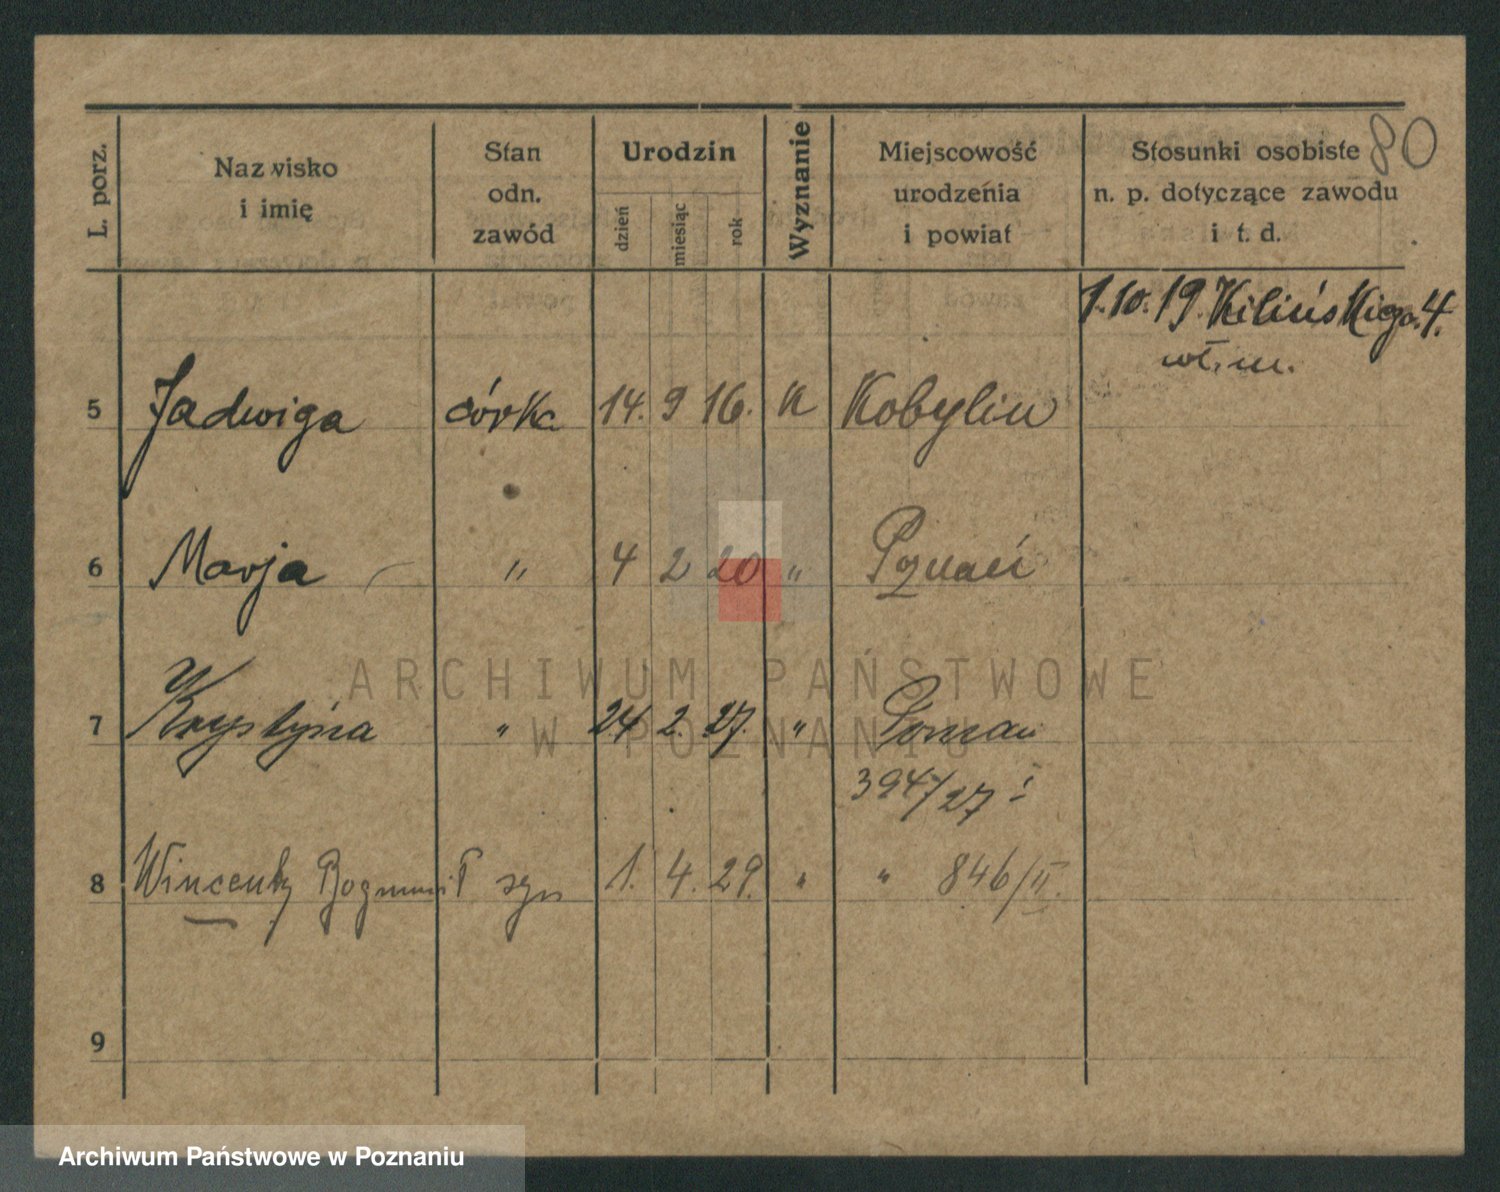 80
L. porz. Nazwisko i imię Stan odn. zawód Urodzin dzień miesiąc rok Wyznanie Miejscowość urodzenia i powiat Stosunki osobiste n. p. dotyczące zawodu i t. d.
1.10.19. Kilińskiego 4.
wł. m.
5 Jadwiga córka 14. 9 16. K Kobylin
6 Marja " 4 2 20 " Poznań
7 Krystyna " 24 2. 27. " Poznań
394/27
8 Wincenty Bogumił syn 1. 4. 29. " " 846/II.
9
ARCHIWUM PAŃSTWOWE
W POZNANIU
Archiwum Państwowe w Poznaniu